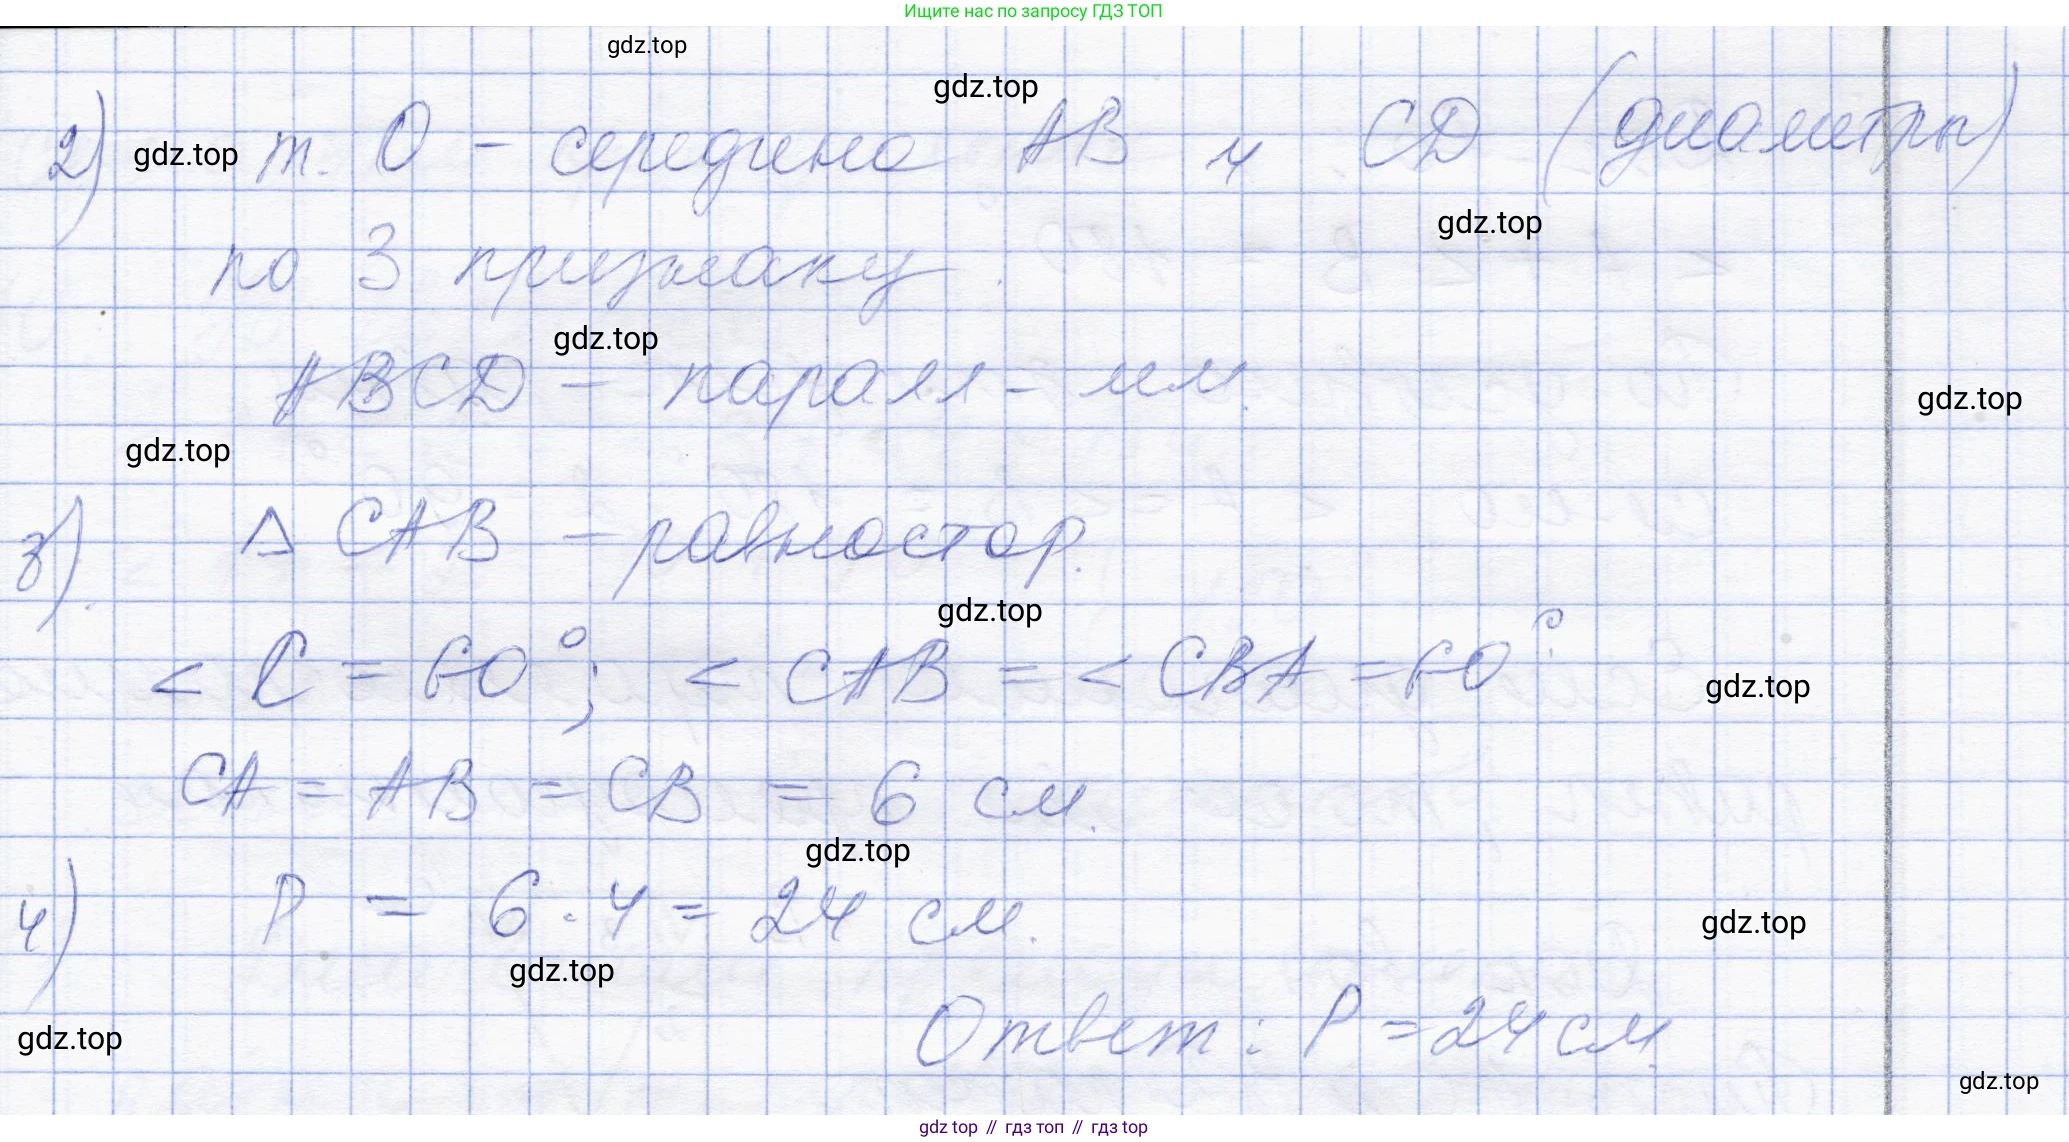 Ищите нас по запросу ГДЗ ТОП
gdz.top
gdz.top
2) gdz.top т. О - середина АВ и CD (диаметры)
gdz.top
по 3 признаку.
gdz.top
ABCD - паралл-мм.
gdz.top
gdz.top
3) Δ CAB - равностор.
gdz.top
< C = 60°; < CAB = < CBA = 60°.
gdz.top
CA = AB = CB = 6 см.
gdz.top
4) P = 6 · 4 = 24 см.
gdz.top
gdz.top
Ответ: P = 24 см.
gdz.top
gdz.top
gdz top // гдз топ // гдз top